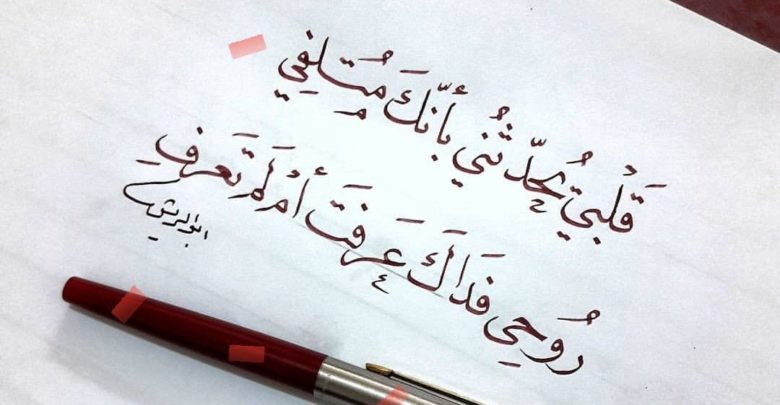 قَلْبي يُحدّثُني بأنّكَ مُتلِفِي
رُوحِي فَدَاكَ عَرفَتَ أمْ لَمْ تَعرفِ